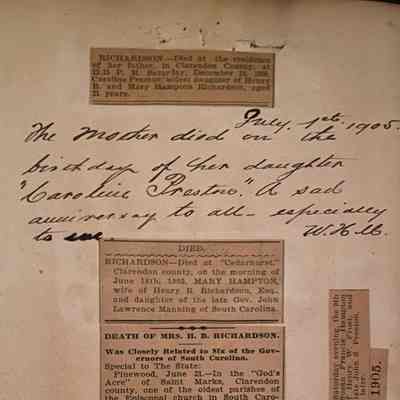 RICHARDSON—Died at the residence
of her father, in Clarendon County, at
12.15 P. M. Saturday, December
Caroline Preston, eldest daughter of Henry
B. and Mary Hampton Richardson, aged
21 years.
July. 1st. 1905.
The Mother died on the
birthday of her daughter
"Caroline Preston". A sad
anniversary to all— especially
to me.
DIED.
RICHARDSON—Died at "Cedarhurst,"
Clarendon county, on the morning of
June 18th, 1905, MARY HAMPTON,
wife of Henry B. Richardson, Esq.,
and daughter of the late Gov. John
Lawrence Manning of South Carolina.
DEATH OF MRS. H. B. RICHARDSON.
Was Closely Related to Six of the Gov-
ernors of South Carolina.
Special to The State:
Pinewood, June 21.—In the "God's
Acre" of Saint Marks, Clarendon
county, one of the oldest parishes of
the Episcopal church in South Caro-
Saturday evening, the 9th
Francis Hampton
Henry W. Frost, and
John S. Preston,
later
1905.